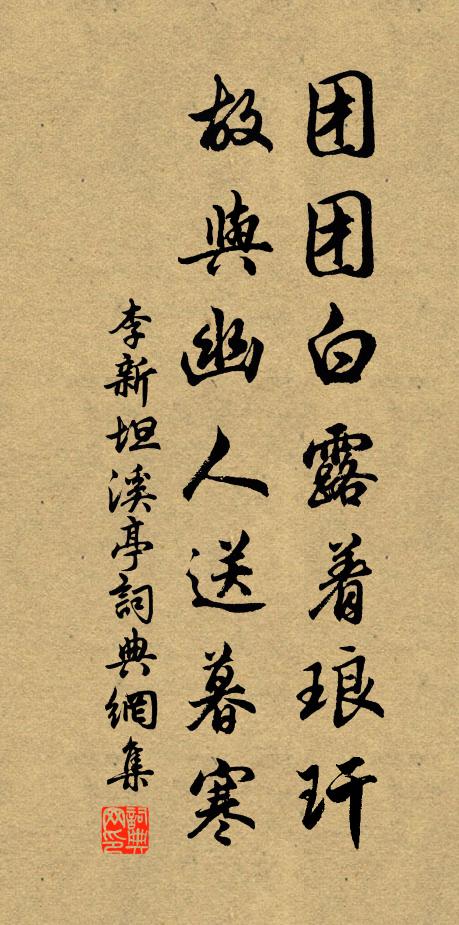 团团白露着琅玕
故與幽人送暮寒
李新坦溪亭詞典網集
詞典
网印